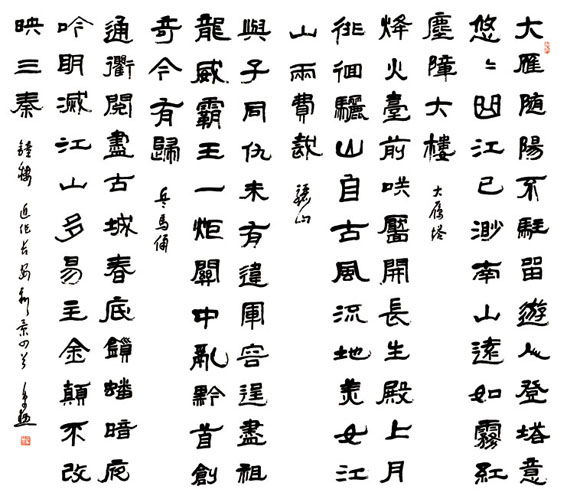 大雁随陽不駐留遊人登塔意
悠〻曲江已渺南山遠如霧紅
塵障大樓 大雁塔
烽火臺前哄靨開長生殿上月
徘徊驪山自古風流地美女江
山兩費裁 驪山
與子同仇未有違軍容逞盡祖
龍威霸王一炬關中亂黔首創
奇今有歸 兵馬俑
通衢閱盡古城春底鎖蟠暗夜
吟明滅江山多易主金顛不改
映三秦 鐘樓 近作長安新景四首